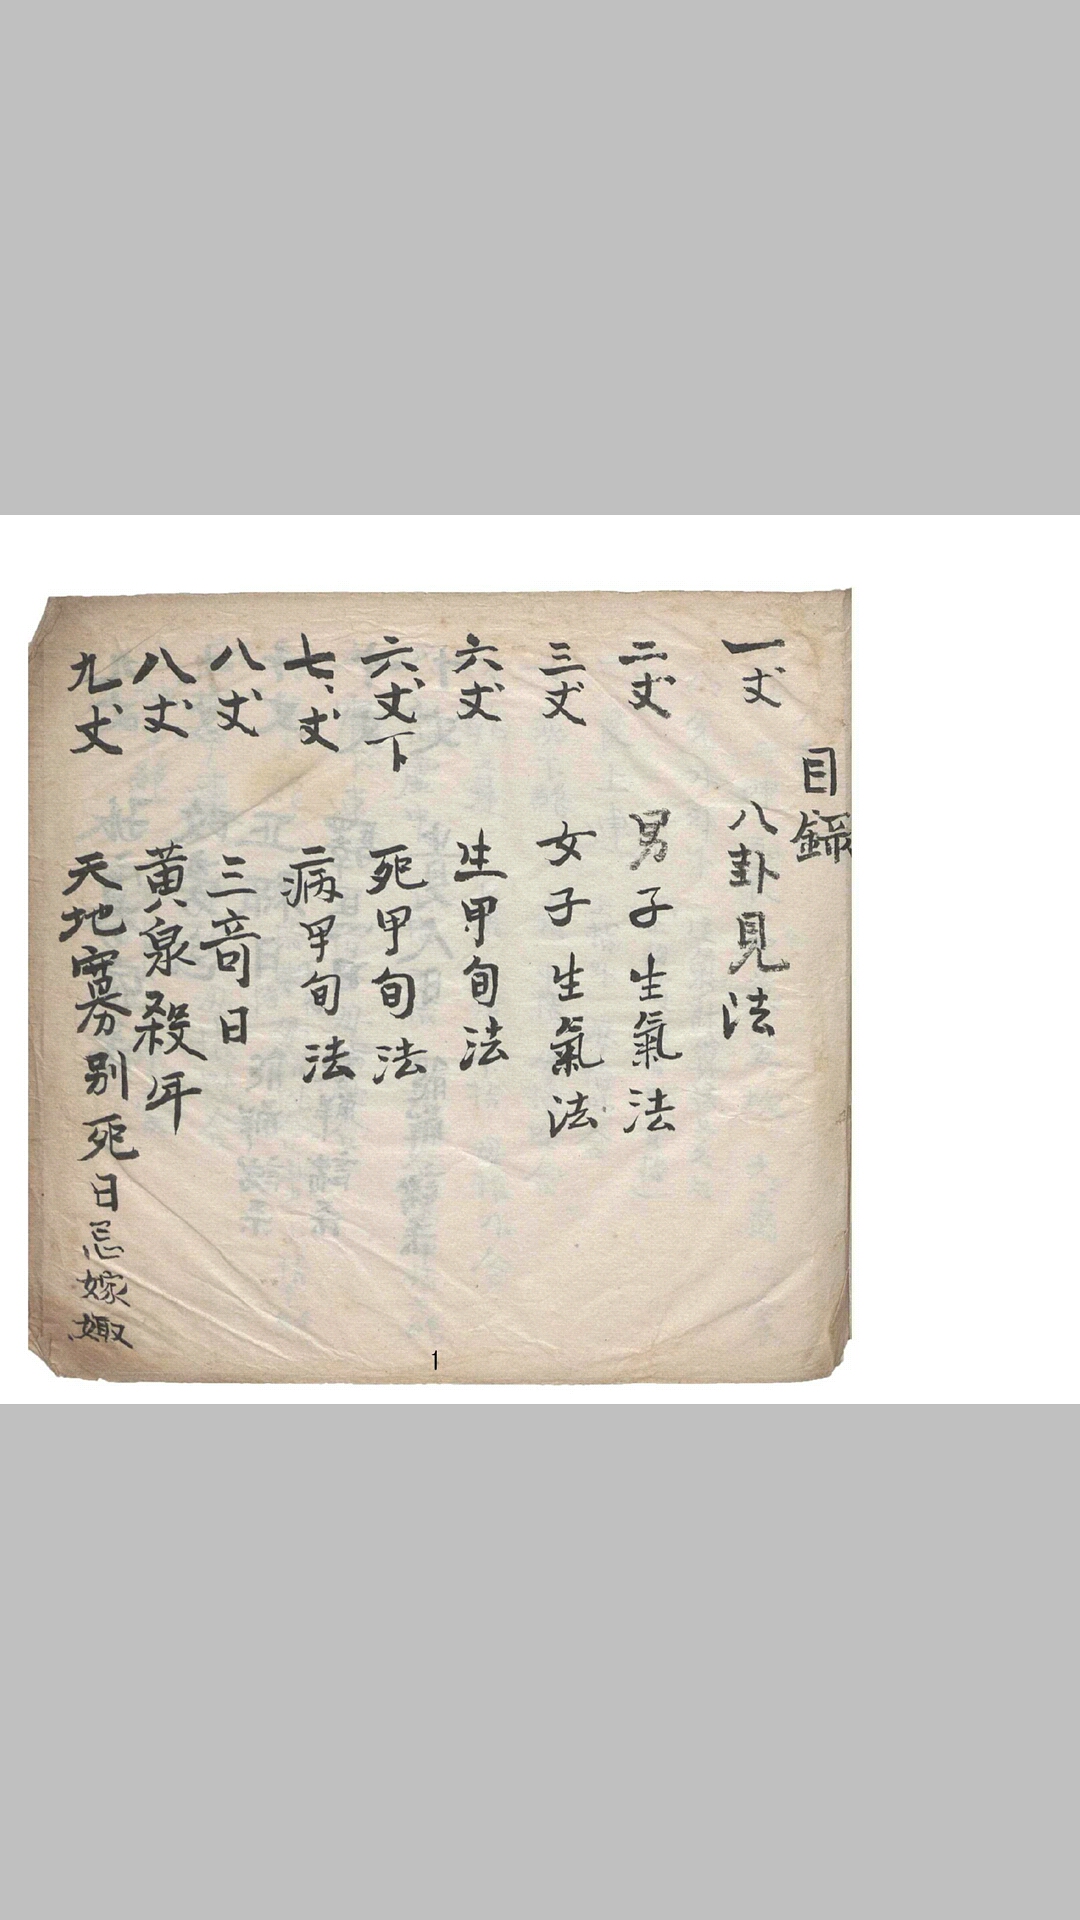 目錄
一丈 八卦見法
二丈 男子生氣法
三丈 女子生氣法
六丈 生甲旬法
六丈下 死甲旬法
七丈 病甲旬法
八丈 三竒日
八丈 黃泉殺年
九丈 天地寡別死日忌嫁娶
1